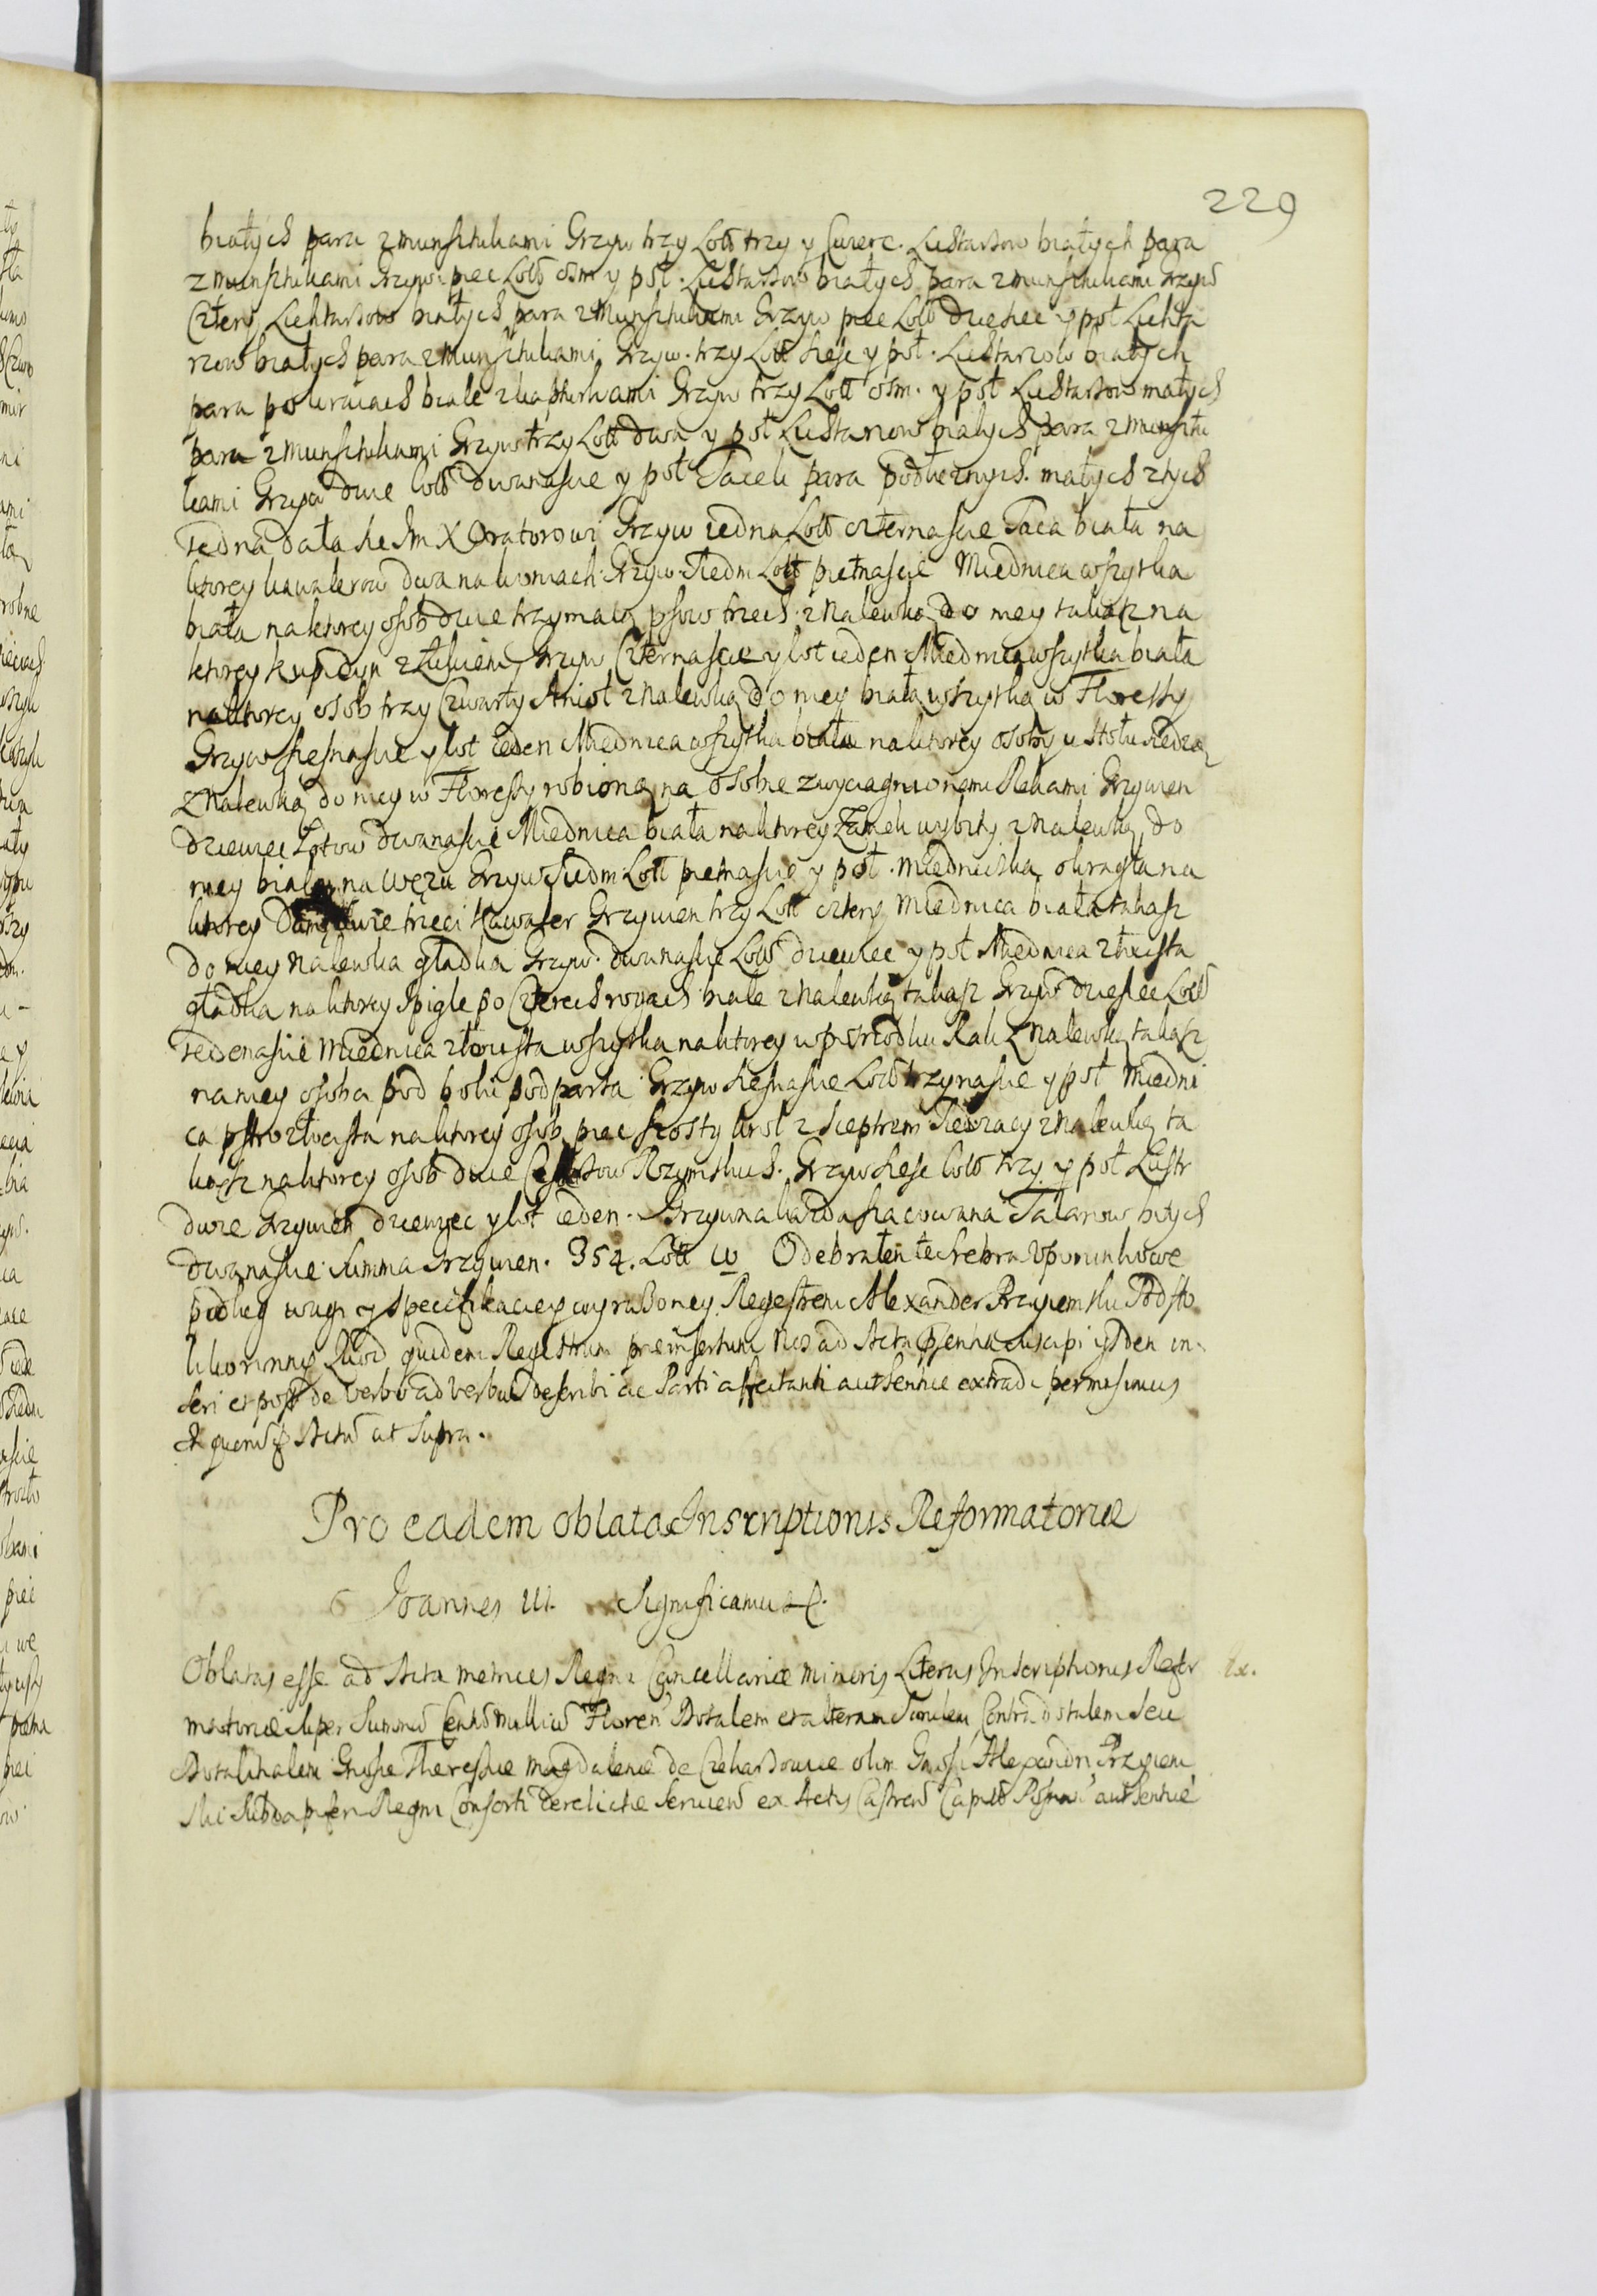 229
białych para z munsztukami Grzyw trzy Lott trzy y Cwierc. Lichtarzow białych para
z munsztukami Grzyw piec Lott osm y poł. Lichtarzow białych para z munsztukami Grzyw
Cztery Lichtarzow białych para z munsztukami Grzyw piec Lott dziesiec y poł Lichta
rzow białych para z munsztukami Grzyw. trzy Lott szesc y poł. Lichtarzow białych
para po kraiach biale z kapturkami Grzyw trzy Lott osm. y poł Lichtarzow małych
para z munsztukami Grzyw trzy Lott dwa y poł Lichtarzow białych para z munsztu
kami Grzyw dwie Lott dwanascie y poł Tacek para podłuznych. małych z tych
iedna dała sie Im X Oratorowi Grzyw iedna Lott czternascie Taca biała na
ktorey kawalerow dwa na koniach. Grzyw. Siedm Lott pietnascie Miednica wszytka
biała na ktorey osob dwie trzymaią psow trzech z nalewką do niey takąsz na
ktorey kupidyn z Łukiem Grzyw Czternascie y lot ieden Miednica wszytka biała
na ktorey osob trzy Czwarty Anioł z nalewką do niey białą wszytką w Floressy
Grzyw szesnascie y lot ieden Miednica wszytka biała na ktorey osoby u stołu siedzą
z nalewką do niey w Floressy robioną na osobie z wyciągnionemi Rekami Grzywien
dziewiec Lotow dwanascie Miednica biała na ktorey Zamek wybity z nalewką do
niey białą na węzu Grzyw Siedm Lott pietnascie y poł. miedniczka okrągła na
ktorey Damy dwie trzeci Kawaler Grzywien trzy Lott cztery Miednica biała takasz
do niey nalewka gładka Grzyw. dwanascie Lott dziewiec y poł Miednica złocista
gładka na ktorey Spigle po Czterech rogach biale z nalewką takąsz Grzyw dziesiec Lott
iedenascie Miednica złocista wszytka na ktorey w posrzodku Rak z nalewką takąsz
na niey osoba pod boki podparta Grzyw szesnascie Lott trzynascie y poł Miedni
ca pstrozłocista na ktorey osob piec szosty krol z sceptrem siedzący z nalewką ta
kąsz na ktorey osob dwie Cesarzow Rzymskich. Grzyw szesc Lott trzy y poł Lustr
dwie Grzywien dziewiec y lot ieden. Grzywna kazda szacowana Talarow bitych
dwanascie Summa Grzywien. 354. Lott Odebrałem te srebra Upominkowe
podług wagi y specifikacyey wyrazoney Regestrem Alexander Przyiemski Podsto
li koronny Quod quidem Regestrum praeinsertum Nos ad Acta suscipi iisdem in
seri et post de verbo ad verbum describi ac Parti affectanti authentice extradi permisimus
Act Supra.
Pro eadem oblata Inscriptionis Reformatoriae
Joannes III. Significamus
Oblatas esse ad Acta metrices Regni Cancellariae minoris Literas Inscriptionis Refor
matoriae super Summam millium Floren Dotalem et alteram similem Contradotalem seu
Dotalitialem Theresiae Magdalenae de olim Alexandri Przyiem
ski Regni Consorti derelictae ex Actis authentice